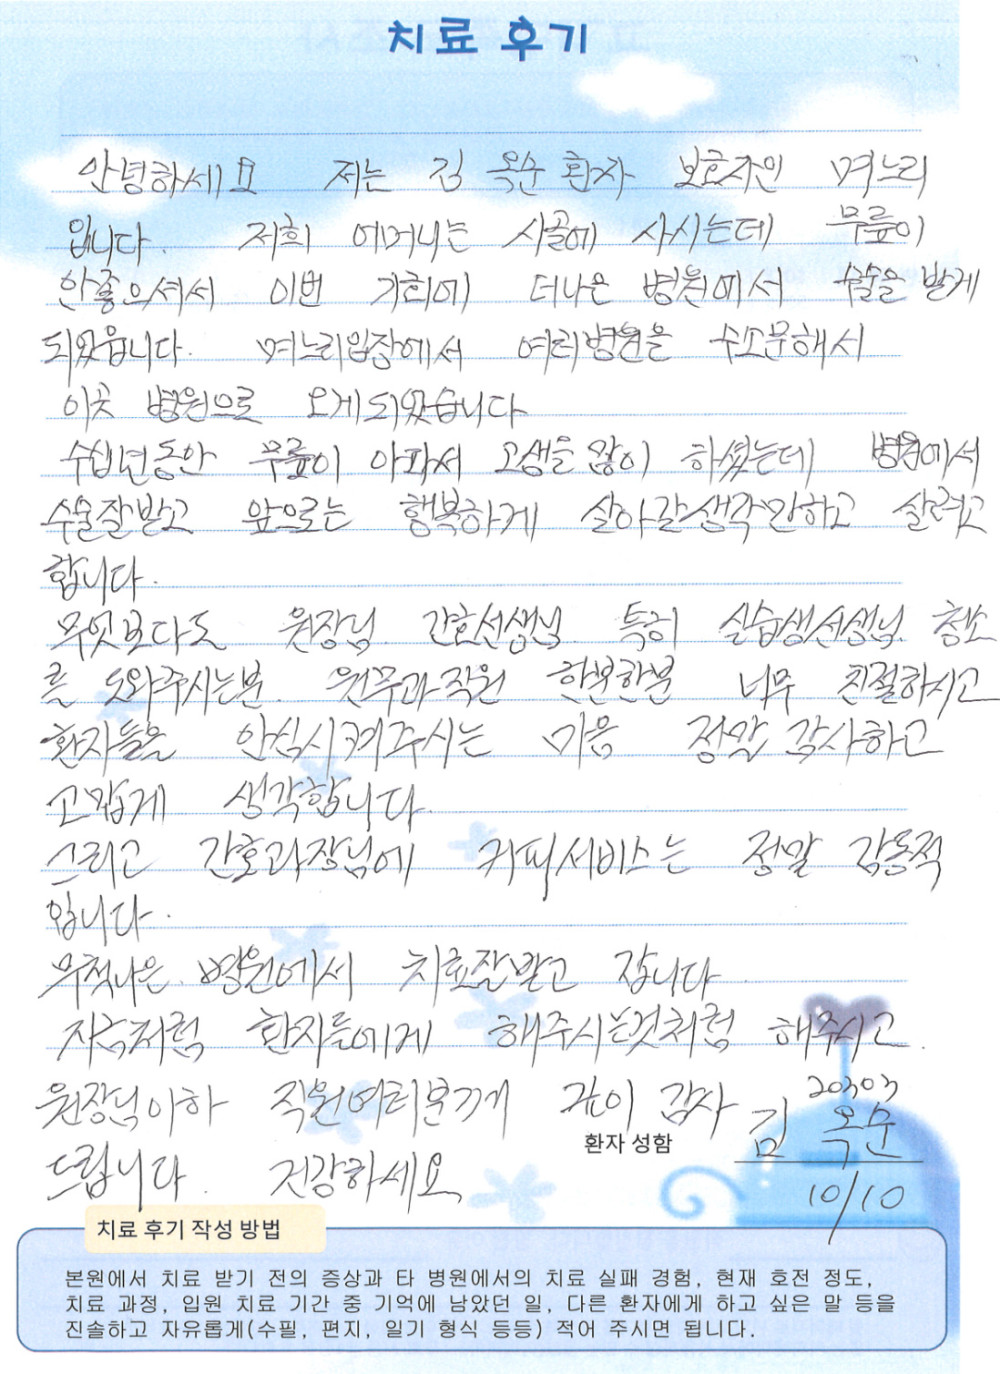 치료 후기
안녕하세요 저는 김 옥순 환자 보호자인 며느리
입니다. 저희 어머니는 시골에 사시는데 무릎이
안좋으셔서 이번 기회에 더나은 병원에서 수술을 받게
되었읍니다. 며느리입장에서 여러병원을 수소문해서
이곳 병원으로 오게되었습니다
수십년동안 무릎이 아파서 고생을 많이 하셨는데 병원에서
수술잘받고 앞으로는 행복하게 살아갈생각만하고 살려고
합니다.
무엇보다도 원장님. 간호선생님. 특히 실습생선생님. 청소
를 도와주시는분. 원무과직원 한분한분 너무 친절하시고
환자들을 안심시켜주시는 마음 정말 감사하고
고맙게 생각합니다.
그리고 간호과장님에 커피서비스는 정말 감동적
입니다.
무척나은 병원에서 치료잘받고 갑니다
지금처럼 환자들에게 해주시는것처럼 해주시고.
원장님이하 직원여러분께 같이 감사
드립니다. 건강하세요
환자 성함
20303
김 옥순
10/10
치료 후기 작성 방법
본원에서 치료 받기 전의 증상과 타 병원에서의 치료 실패 경험, 현재 호전 정도,
치료 과정, 입원 치료 기간 중 기억에 남았던 일, 다른 환자에게 하고 싶은 말 등을
진솔하고 자유롭게(수필, 편지, 일기 형식 등등) 적어 주시면 됩니다.